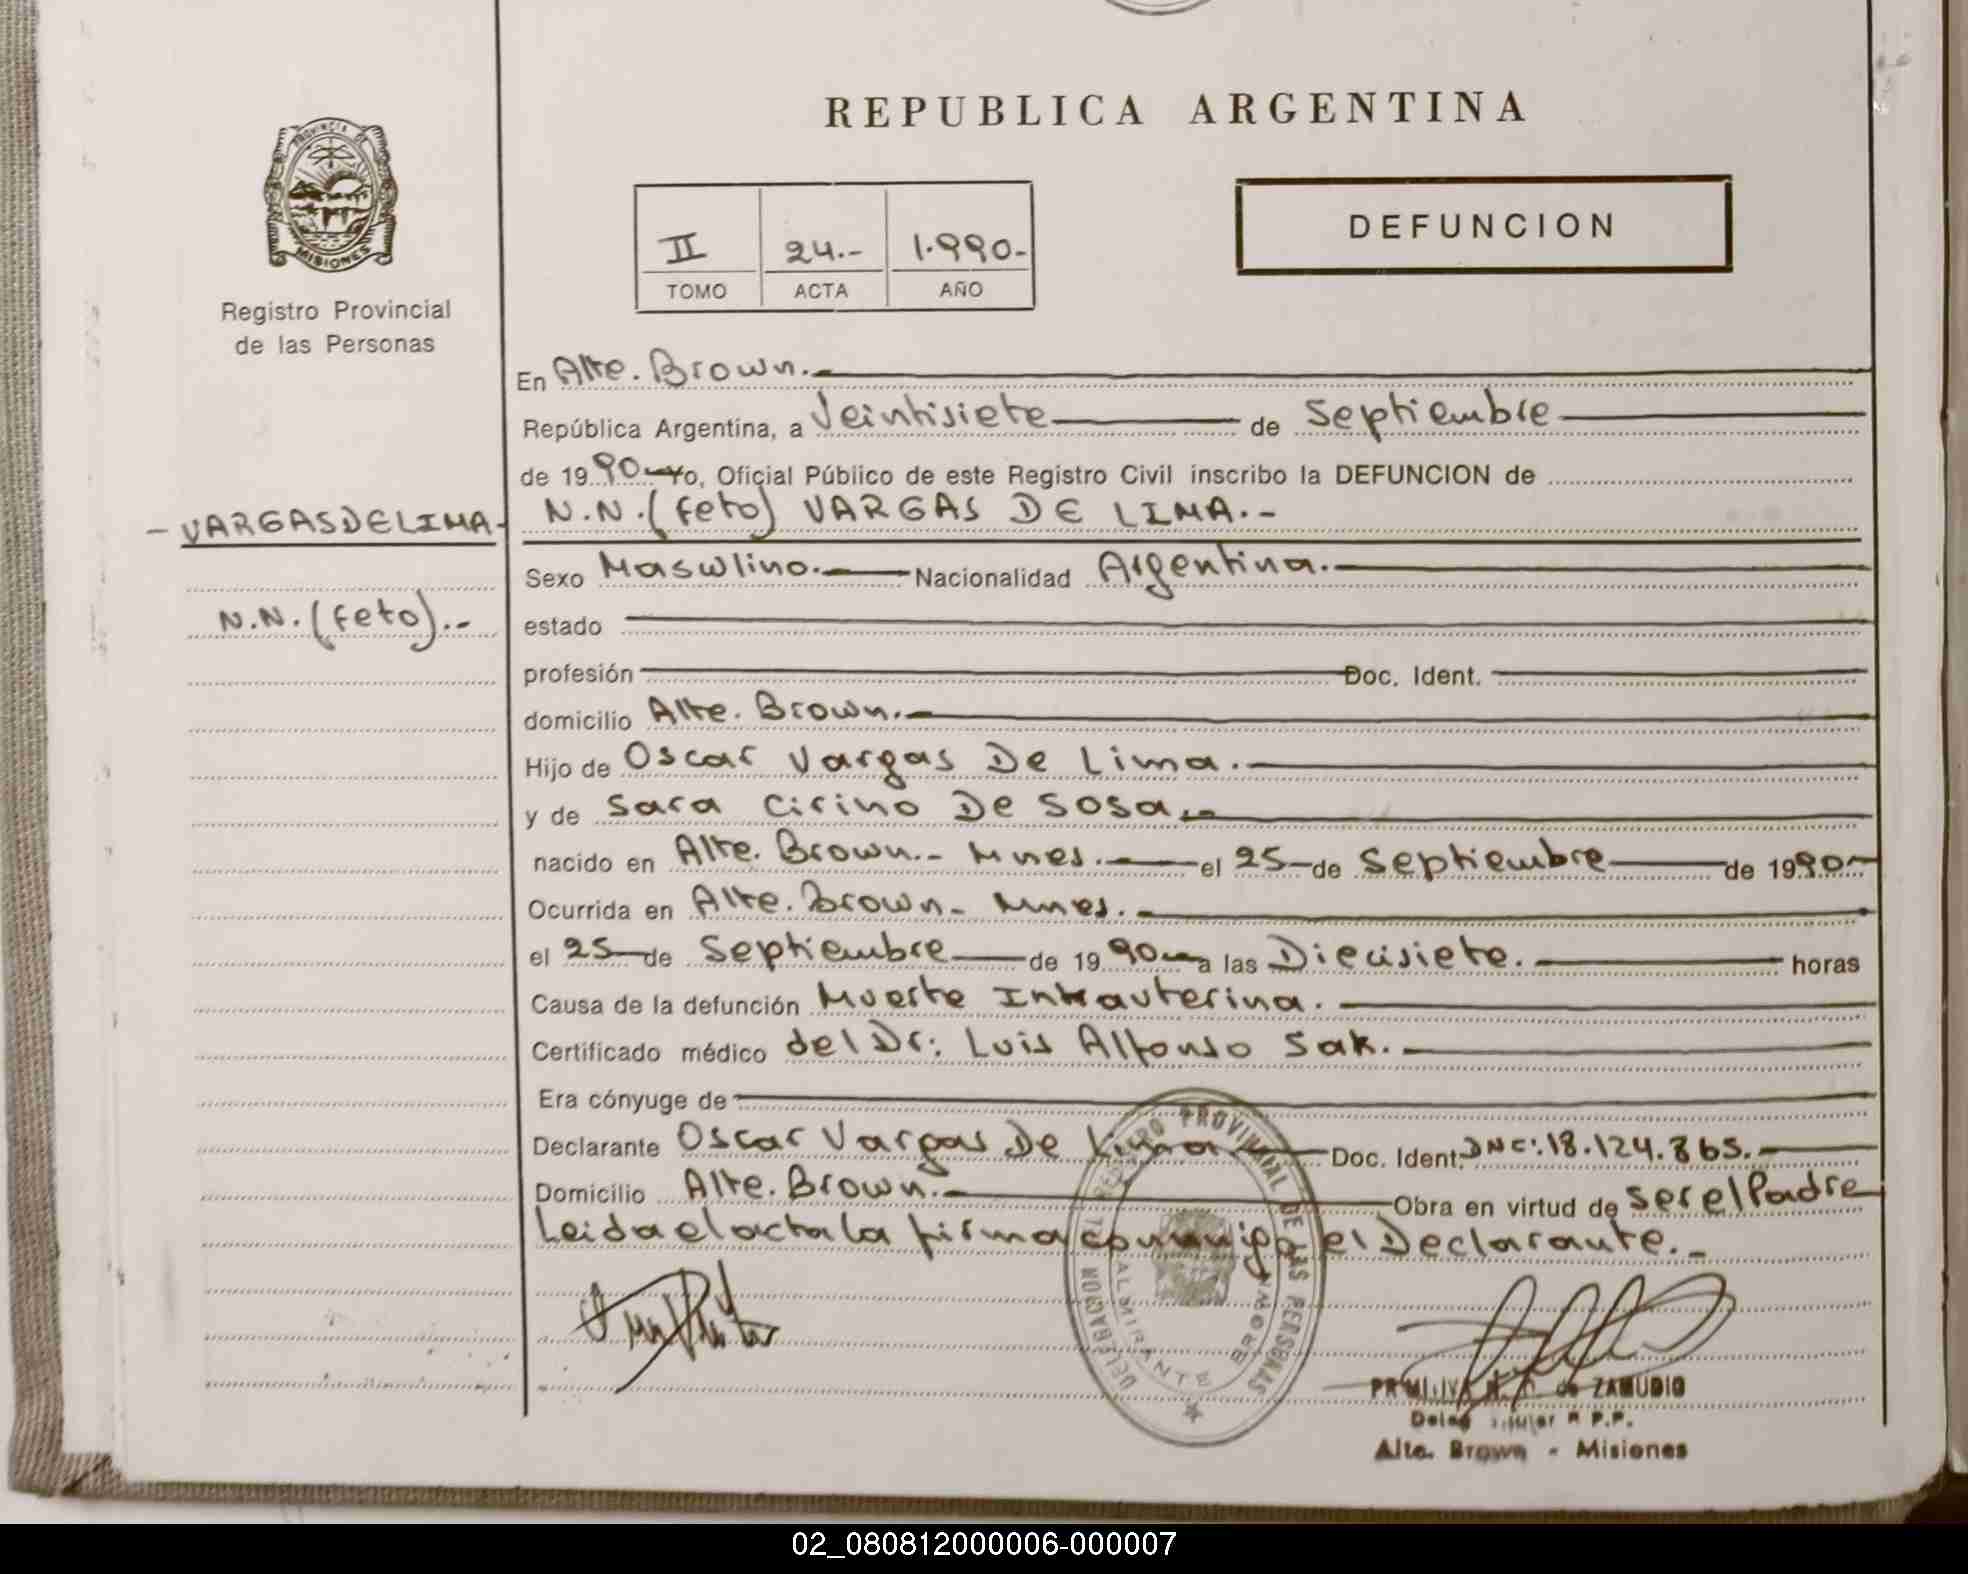 REPUBLICA ARGENTINA
PROVINCIA DE
MISIONES
Registro Provincial
de las Personas
DEFUNCION
II 24.- 1.990.-
TOMO ACTA AÑO
En Alte. Brown.
República Argentina, a Veintisiete de Septiembre
de 19 90 Yo, Oficial Público de este Registro Civil inscribo la DEFUNCION de
- VARGAS DE LIMA -
N.N. (feto) VARGAS DE LIMA.-
Sexo Masculino. Nacionalidad Argentina.
N.N. (feto).-
estado
profesión Doc. Ident.
domicilio Alte. Brown.
Hijo de Oscar Vargas De Lima.
y de Sara Cirino De Sosa.
nacido en Alte. Brown.- Mnes. el 25 de Septiembre de 1990
Ocurrida en Alte. Brown - Mnes.
el 25 de Septiembre de 19 90 a las Diecisiete. horas
Causa de la defunción Muerte Intrauterina.
Certificado médico del Dr: Luis Alfonso Sak.
Era cónyuge de
Declarante Oscar Vargas De Lima Doc. Ident. DNC: 18.124.865.
Domicilio Alte. Brown. Obra en virtud de ser el Padre
Leida el acta la firma conmigo el Declarante.-
REGISTRO PROVINCIAL DE LAS PERSONAS
DELEGACION
ALMIRANTE BROWN
de ZAMUDIO
R.P.P.
Alte. Brown - Misiones
02_080812000006-000007